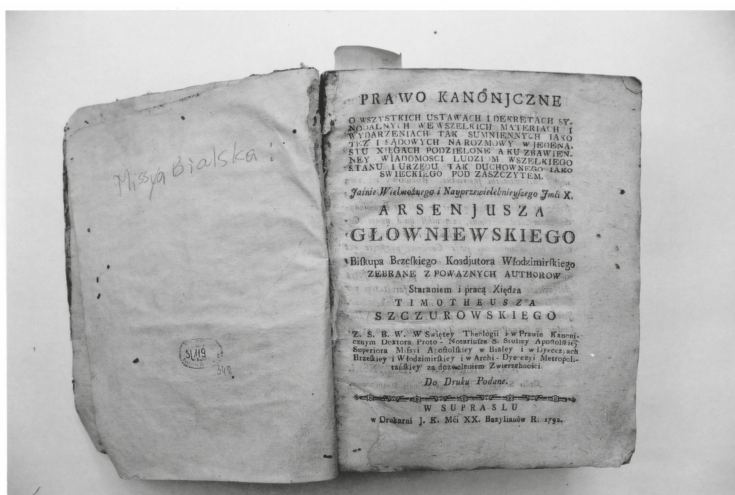 Missya Bialska:
51/19
348
PRAWO KANÓNJCZNE
O WSZYSTKICH USTAWACH I DEKRETACH SY-
NODALNYCH WE WSZELKICH MATERIACH I
WYDARZENIACH TAK SUMNIENNYCH IAKO
TEŻ I SĄDOWYCH NA ROZMOWY W JEDENA-
STU XIĘGACH PODZIELONE A KU ZBAWIEN-
NEY WIADOMOSCI LUDZIOM WSZELKIEGO
STANU I URZĘDU TAK DUCHOWNEGO IAKO
SWIECKIEGO POD ZASZCZYTEM.
Jaśnie Wielmożnego i Nayprzewielebnieyszego Jmći X.
ARSENJUSZA
GŁOWNIEWSKIEGO
Biſkupa Brzeſkiego Koadjutora Włodzimirſkiego
ZEBRANE Z POWAŻNYCH AUTHOROW
Staraniem i pracą Xiędza
TIMOTHEUSZA
SZCZUROWSKIEGO
Z. S. B. W. W Swiętey Theologii i w Prawie Kanoni-
cznym Doktora Proto - Notariusza S. Stolicy Apoſtolſkiey
Superiora Miſsyi Apoſtolſkiey w Białey i w Dyecezjach
Brzeſkiey i Włodzimirſkiey i w Archi - Dyecezyi Metropoli-
tańſkiey za dozwoleniem Zwierzchności
Do Druku Podane.
W SUPRASLU
w Drukarni J. K. Mći XX. Bazylianów R. 1792.